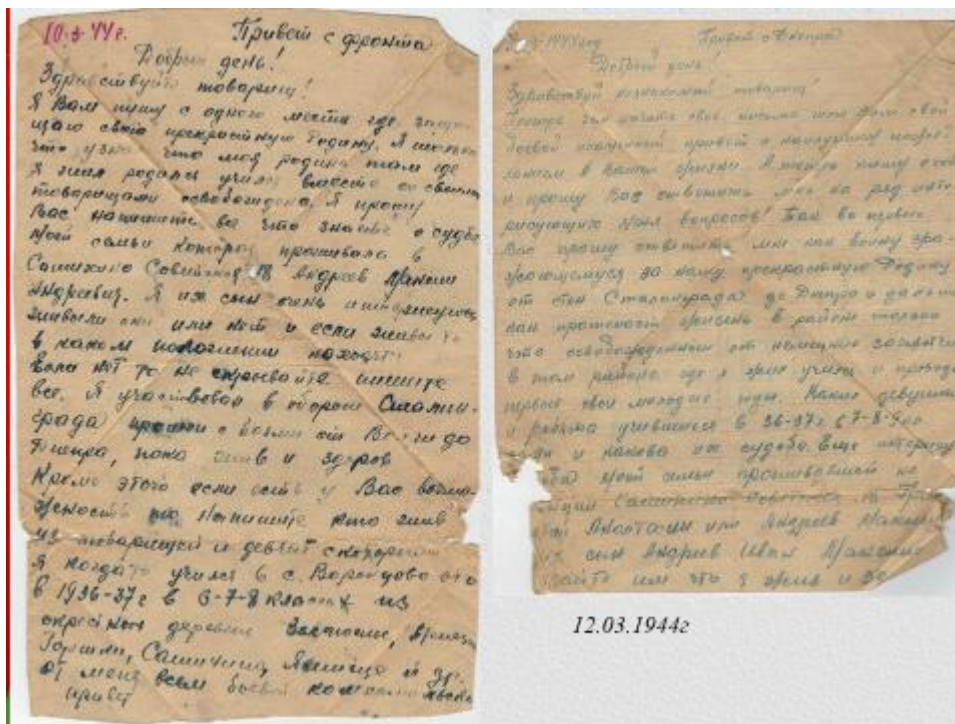 10-3-44г. Привет с фронта
Добрый день!
Здравствуйте товарищ!
Я Вам пишу с одного места где защи-
щаю свою прекрастную Родину. Я
что узнал что моя родина там где
Я жил родился учился вместе со своими
товарищами освобождена. Я прошу
Вас напишите все что знаете о судьбе
моей семьи которая проживала в
Сашихино Советская 18 Андреев Максим
Андреевич. Я их сын очень интересуюсь
живы ли они или нет и если живы то
в каком положении находятся
Если нет то не скрывайте пишите
все. Я участвовал в обороне Сталин-
града прошел с боями от Волги до
Днепра, пока жив и здоров
Кроме этого если есть у Вас возмо-
жность то напишите кто жив
из товарищей и девчат с которыми
Я когда то учился в с. Воронцово это
в 1936-37г в 6-7-8 классах из
окрестных деревень
Горшки, Сашихино, и др.
От меня всем боевой комсомольский
привет
3-1944 год Привет с Днепра
Добрый день!
Здравствуй незнакомый товарищ
Прежде чем начать свое письмо шлю Вам свой
боевой привет и наилучших
в Вашей жизни. А теперь пишу
и прошу Вас ответить мне на ряд инте-
рисующих меня вопросов! Так во первых
Вас прошу ответить мне как воину сра-
жающемуся за нашу прекрастную Родину
от стен Сталинграда до Днепра и дальше
как протекает жизнь в районе только
что освобожденным от немецких
в том районе где я жил учился и
первые свои молодые годы. Какие девушки
и ребята учившиеся в 36-37г 6-7-8
и какова их судьба. Еще
моей семьи проживавшей на
Сашихино Советская
Анастасии или Андреев Максим
их сын Андреев Иван Максимо
что я жив и
12.03.1944г